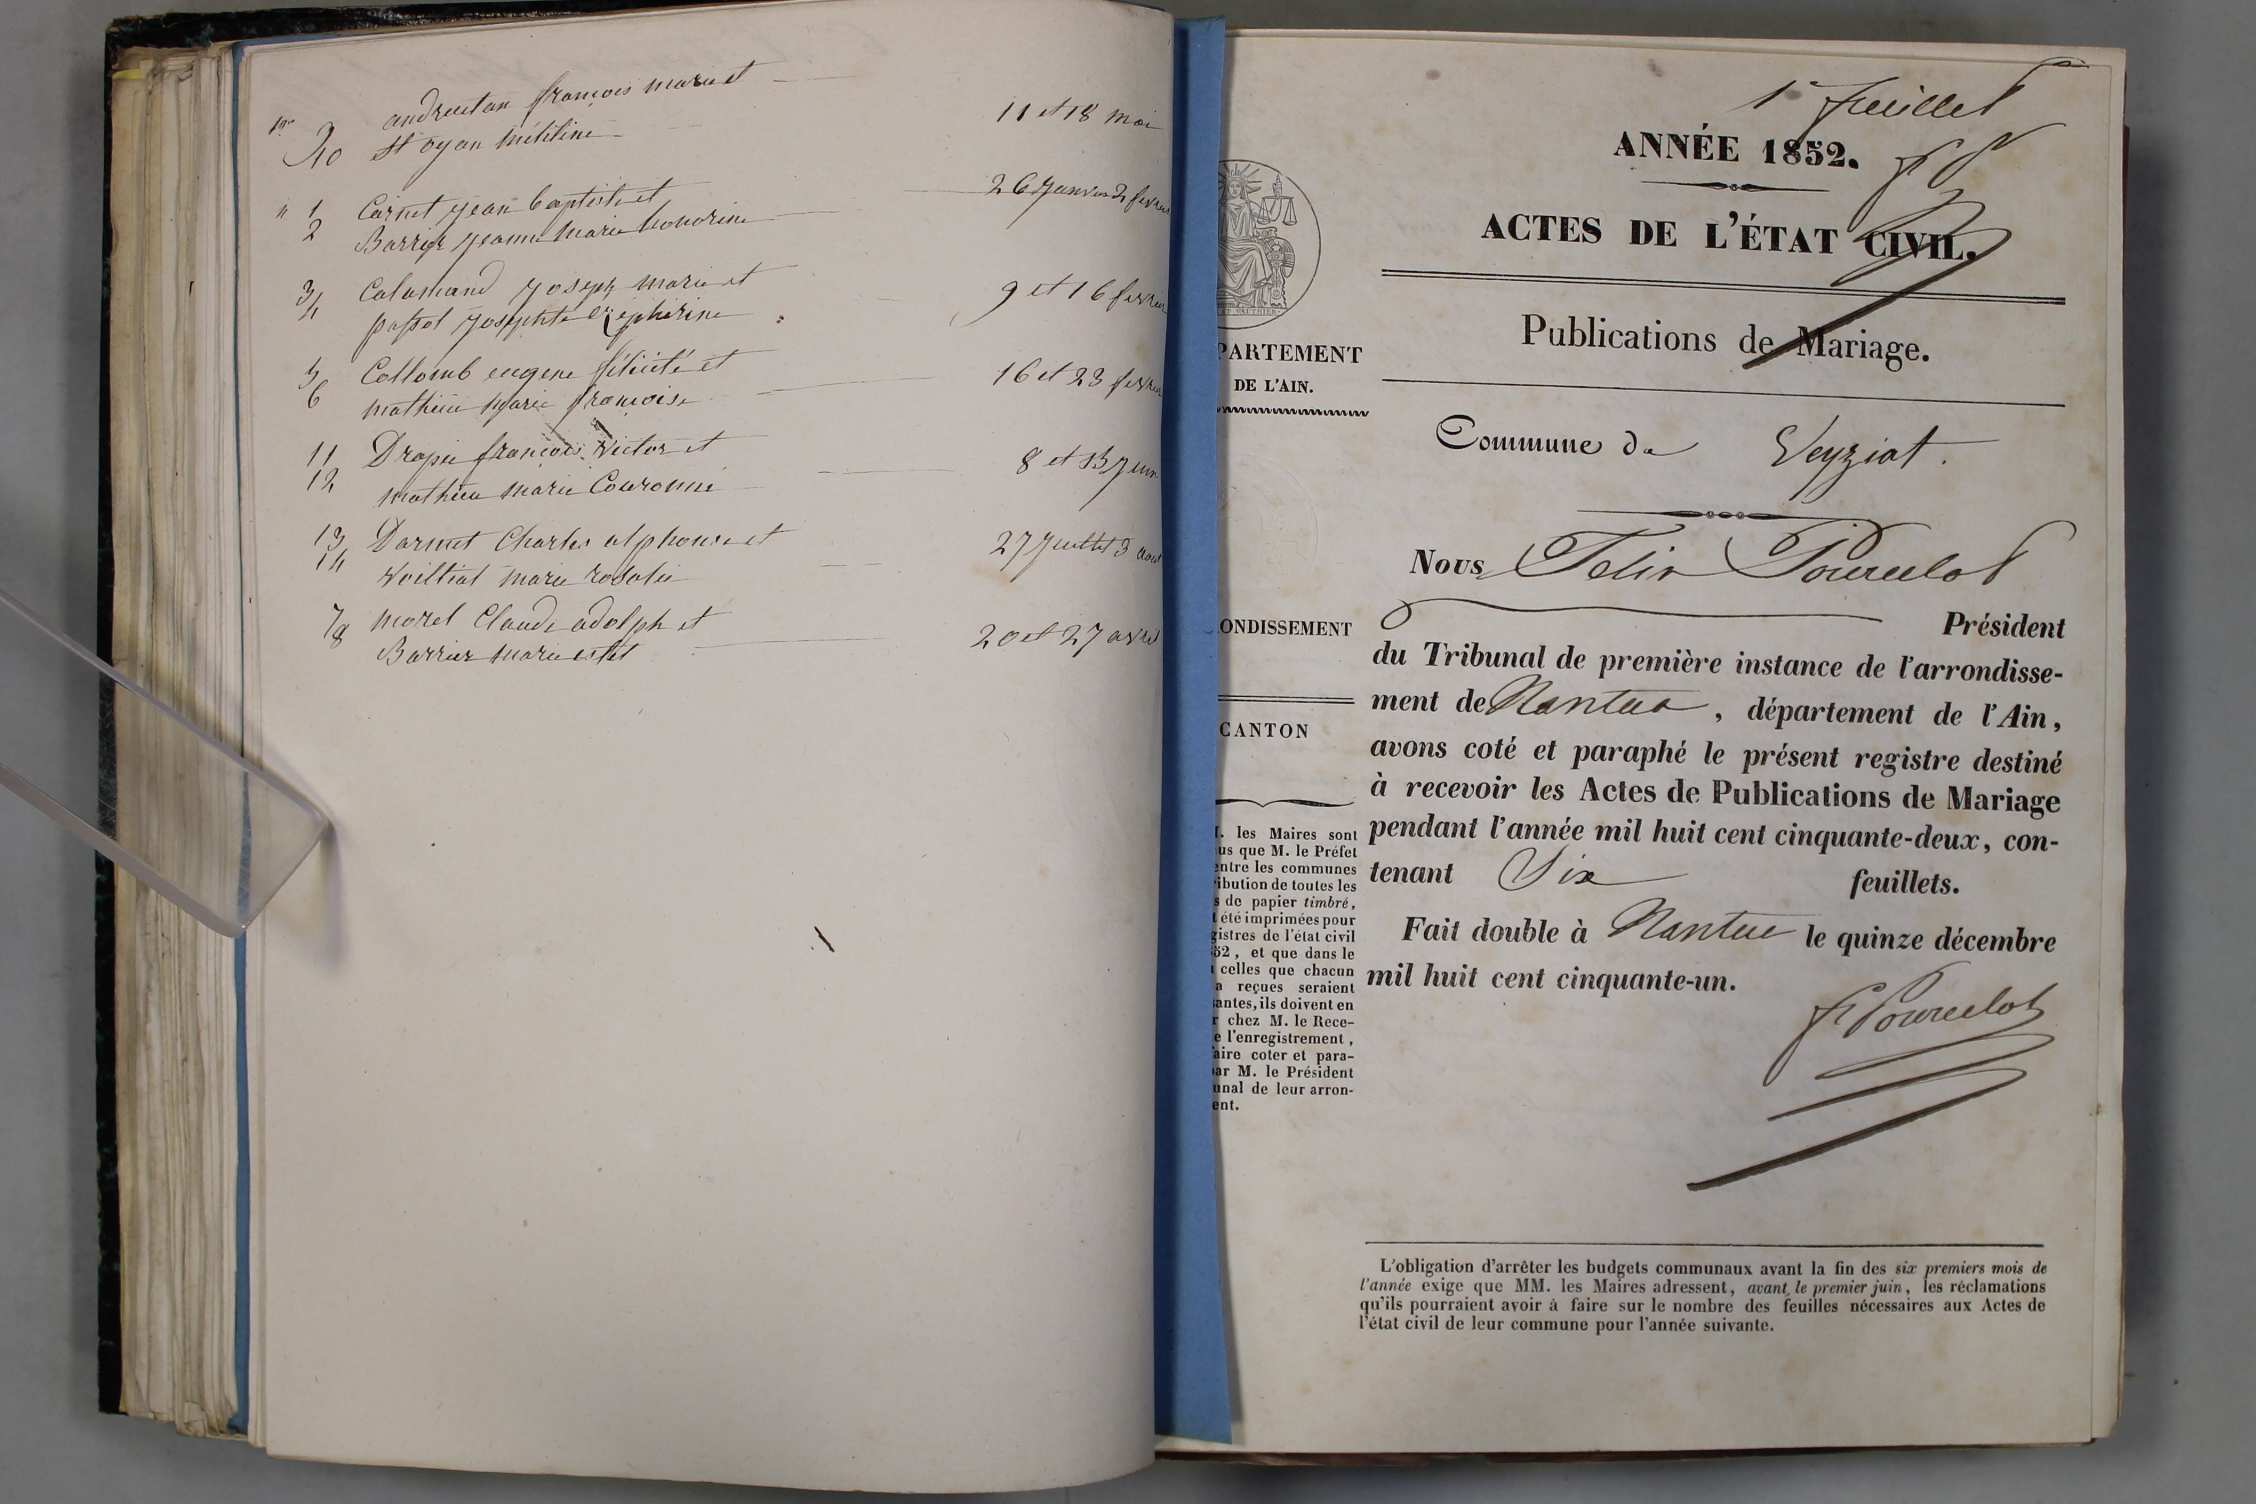 andruitan françois marie et
9
10 St oyan Mélitine
11 et 18 mai
" 1 Carnet jean baptiste et
2 Barrier jeanne Marie honorine
26 janvier 2 fevrier
3 Calamand joseph marie et
4 passot josephte Zephirine
9 et 16 fevrier
5 Collomb eugene félicité et
6 mathieu marie françoise
16 et 23 fevrier
11 Drapie françois Victor et
12 mathieu marie Couronne
8 et 15 juin
13 Darmet Charles alphonse et
14 Voilliat marie rosalie
27 juillet 3 aout
7 morel Claude adolph et
8 Barrier marie estel
20 et 27 avril
1er feuillet
ANNÉE 1852.
ACTES DE L'ÉTAT CIVIL.
Publications de Mariage.
PARTEMENT
DE L'AIN.
Commune de Veyziat.
Nous Felix Pourcelot
Président
ONDISSEMENT
du Tribunal de première instance de l'arrondisse-
ment de Nantua, département de l'Ain,
avons coté et paraphé le présent registre destiné
à recevoir les Actes de Publications de Mariage
pendant l'année mil huit cent cinquante-deux, con-
tenant Six feuillets.
Fait double à Nantua le quinze décembre
mil huit cent cinquante-un.
F Pourcelot
CANTON
. les Maires sont
us que M. le Préfet
entre les communes
ibution de toutes les
s de papier timbré,
t été imprimées pour
gistres de l'état civil
52, et que dans le
celles que chacun
a reçues seraient
antes, ils doivent en
r chez M. le Rece-
e l'enregistrement,
aire coter et para-
ar M. le Président
unal de leur arron-
ent.
L'obligation d'arrêter les budgets communaux avant la fin des six premiers mois de
l'année exige que MM. les Maires adressent, avant le premier juin, les réclamations
qu'ils pourraient avoir à faire sur le nombre des feuilles nécessaires aux Actes de
l'état civil de leur commune pour l'année suivante.